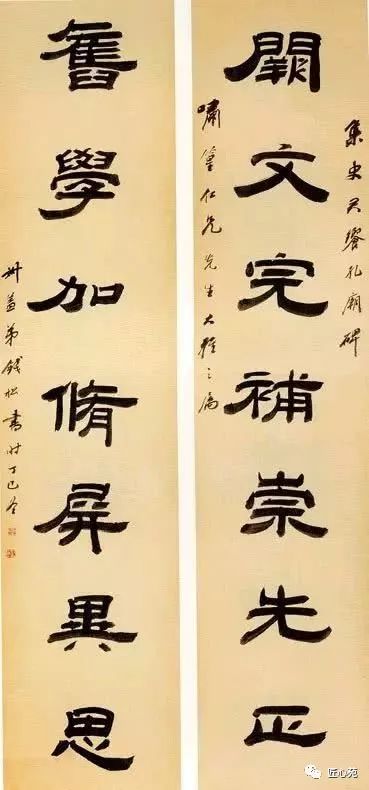 集史君饗孔廟碑
闕文完補崇先正
嘯篁仁兄先生大雅之属
舊學加脩屏異思
叔蓋弟錢松書時丁巳
匠心苑